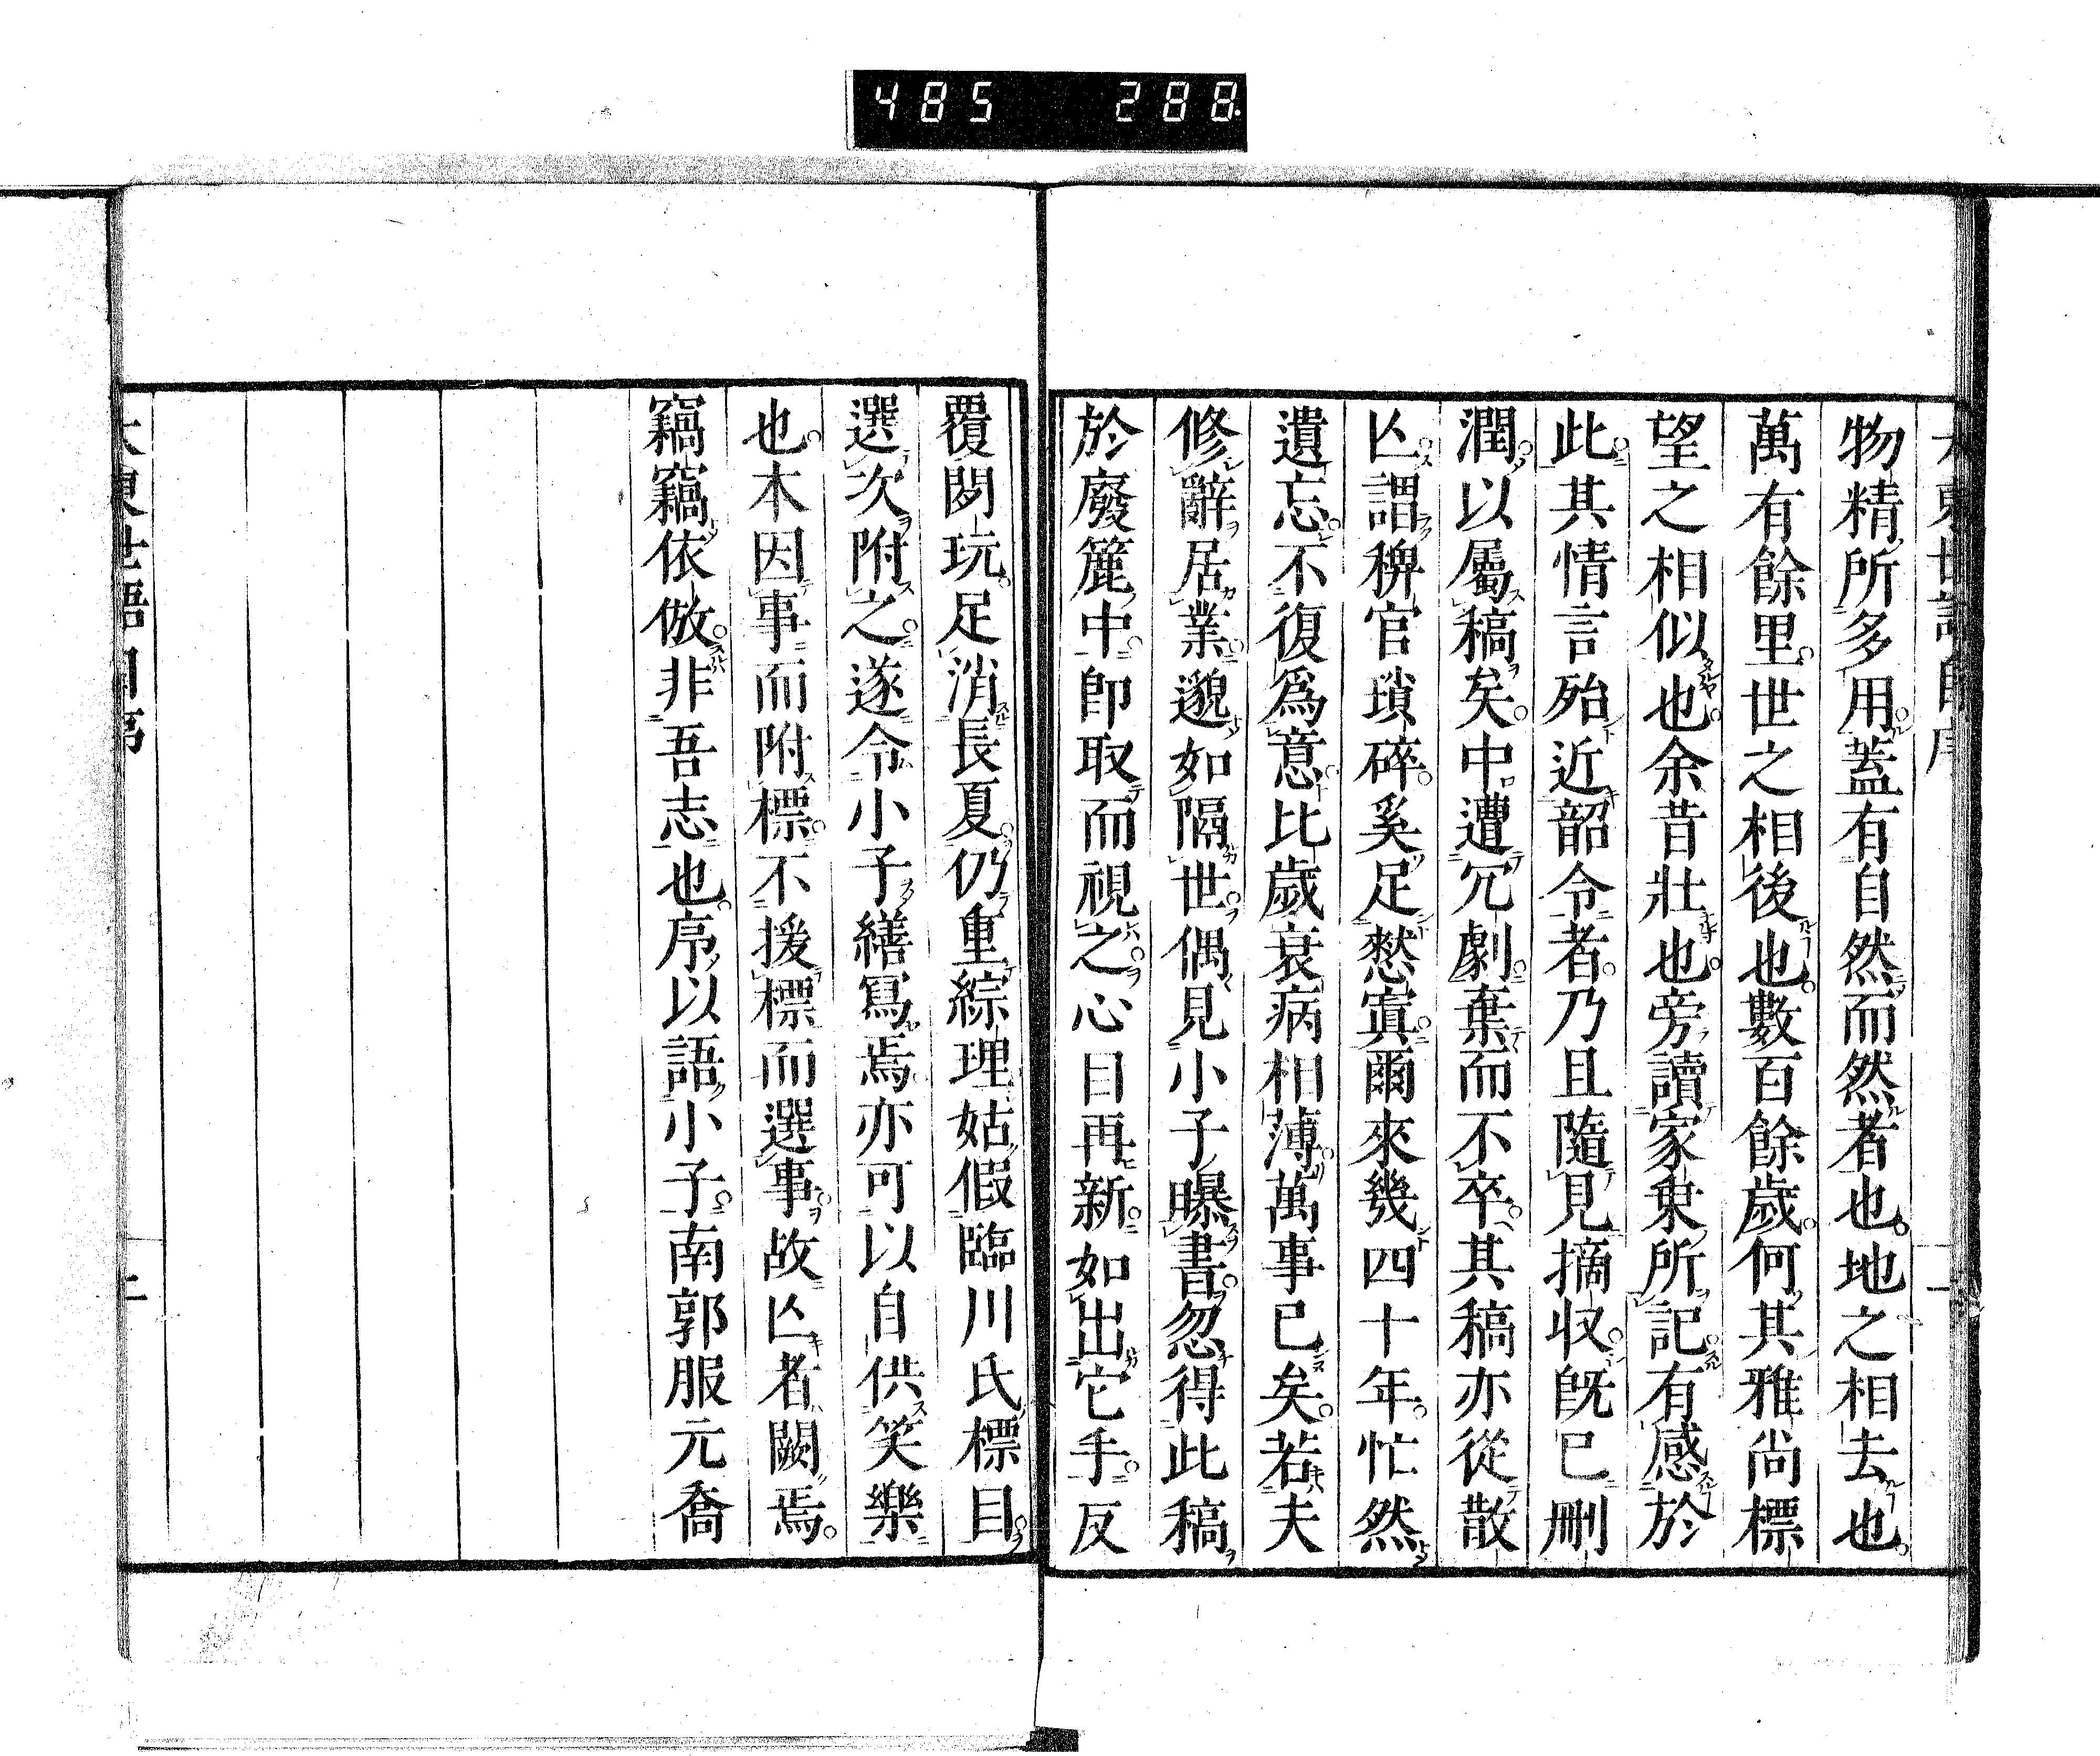 485 288
物精所多用蓋有自然而然者也地之相去也
萬有餘里世之相後也數百餘歲何其雅尚標
望之相似也余昔壯也旁讀家乘所記有感於
此其情言殆近韶令者乃且隨見摘収旣已刪
潤以屬稿矣中遭冗劇棄而不卒其稿亦從散
亾謂稗官瑣碎奚足憖寘爾來幾四十年忙然
遺忘不復爲意比歲衰病相薄萬事已矣若夫
修辭居業邈如隔世偶見小子曝書忽得此稿
於廢簏中卽取而視之心目再新如出它手反
覆閱玩足消長夏仍重綜理姑假臨川氏標目
選次附之遂令小子繕寫焉亦可以自供笑樂
也本因事而附標不援標而選事故亾者闕焉
竊竊依倣非吾志也序以語小子南郭服元喬